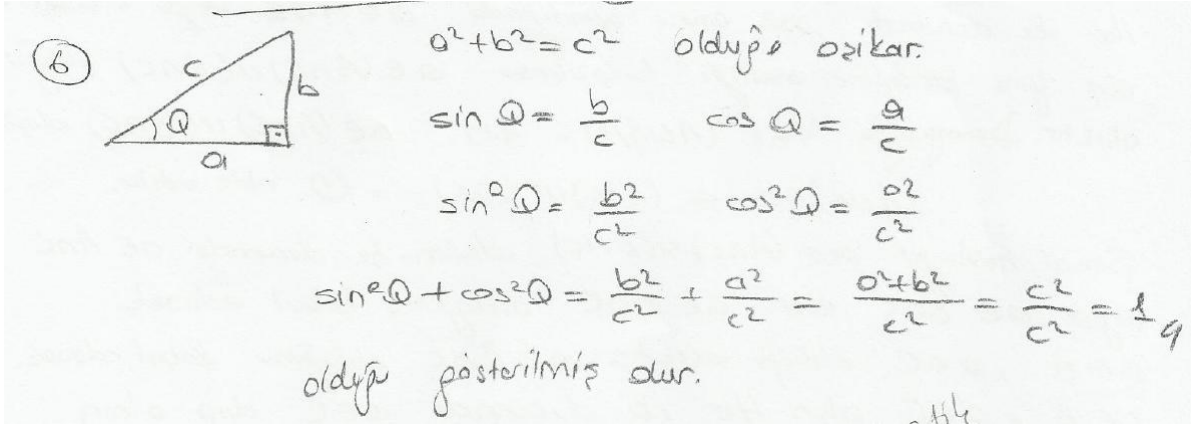 6
c
b
Q
a
a²+b²=c² olduğu aşikar.
sin Q = b/c cos Q = a/c
sin²Q = b²/c² cos²Q = a²/c²
sin²Q + cos²Q = b²/c² + a²/c² = a²+b²/c² = c²/c² = 1
olduğu gösterilmiş olur.